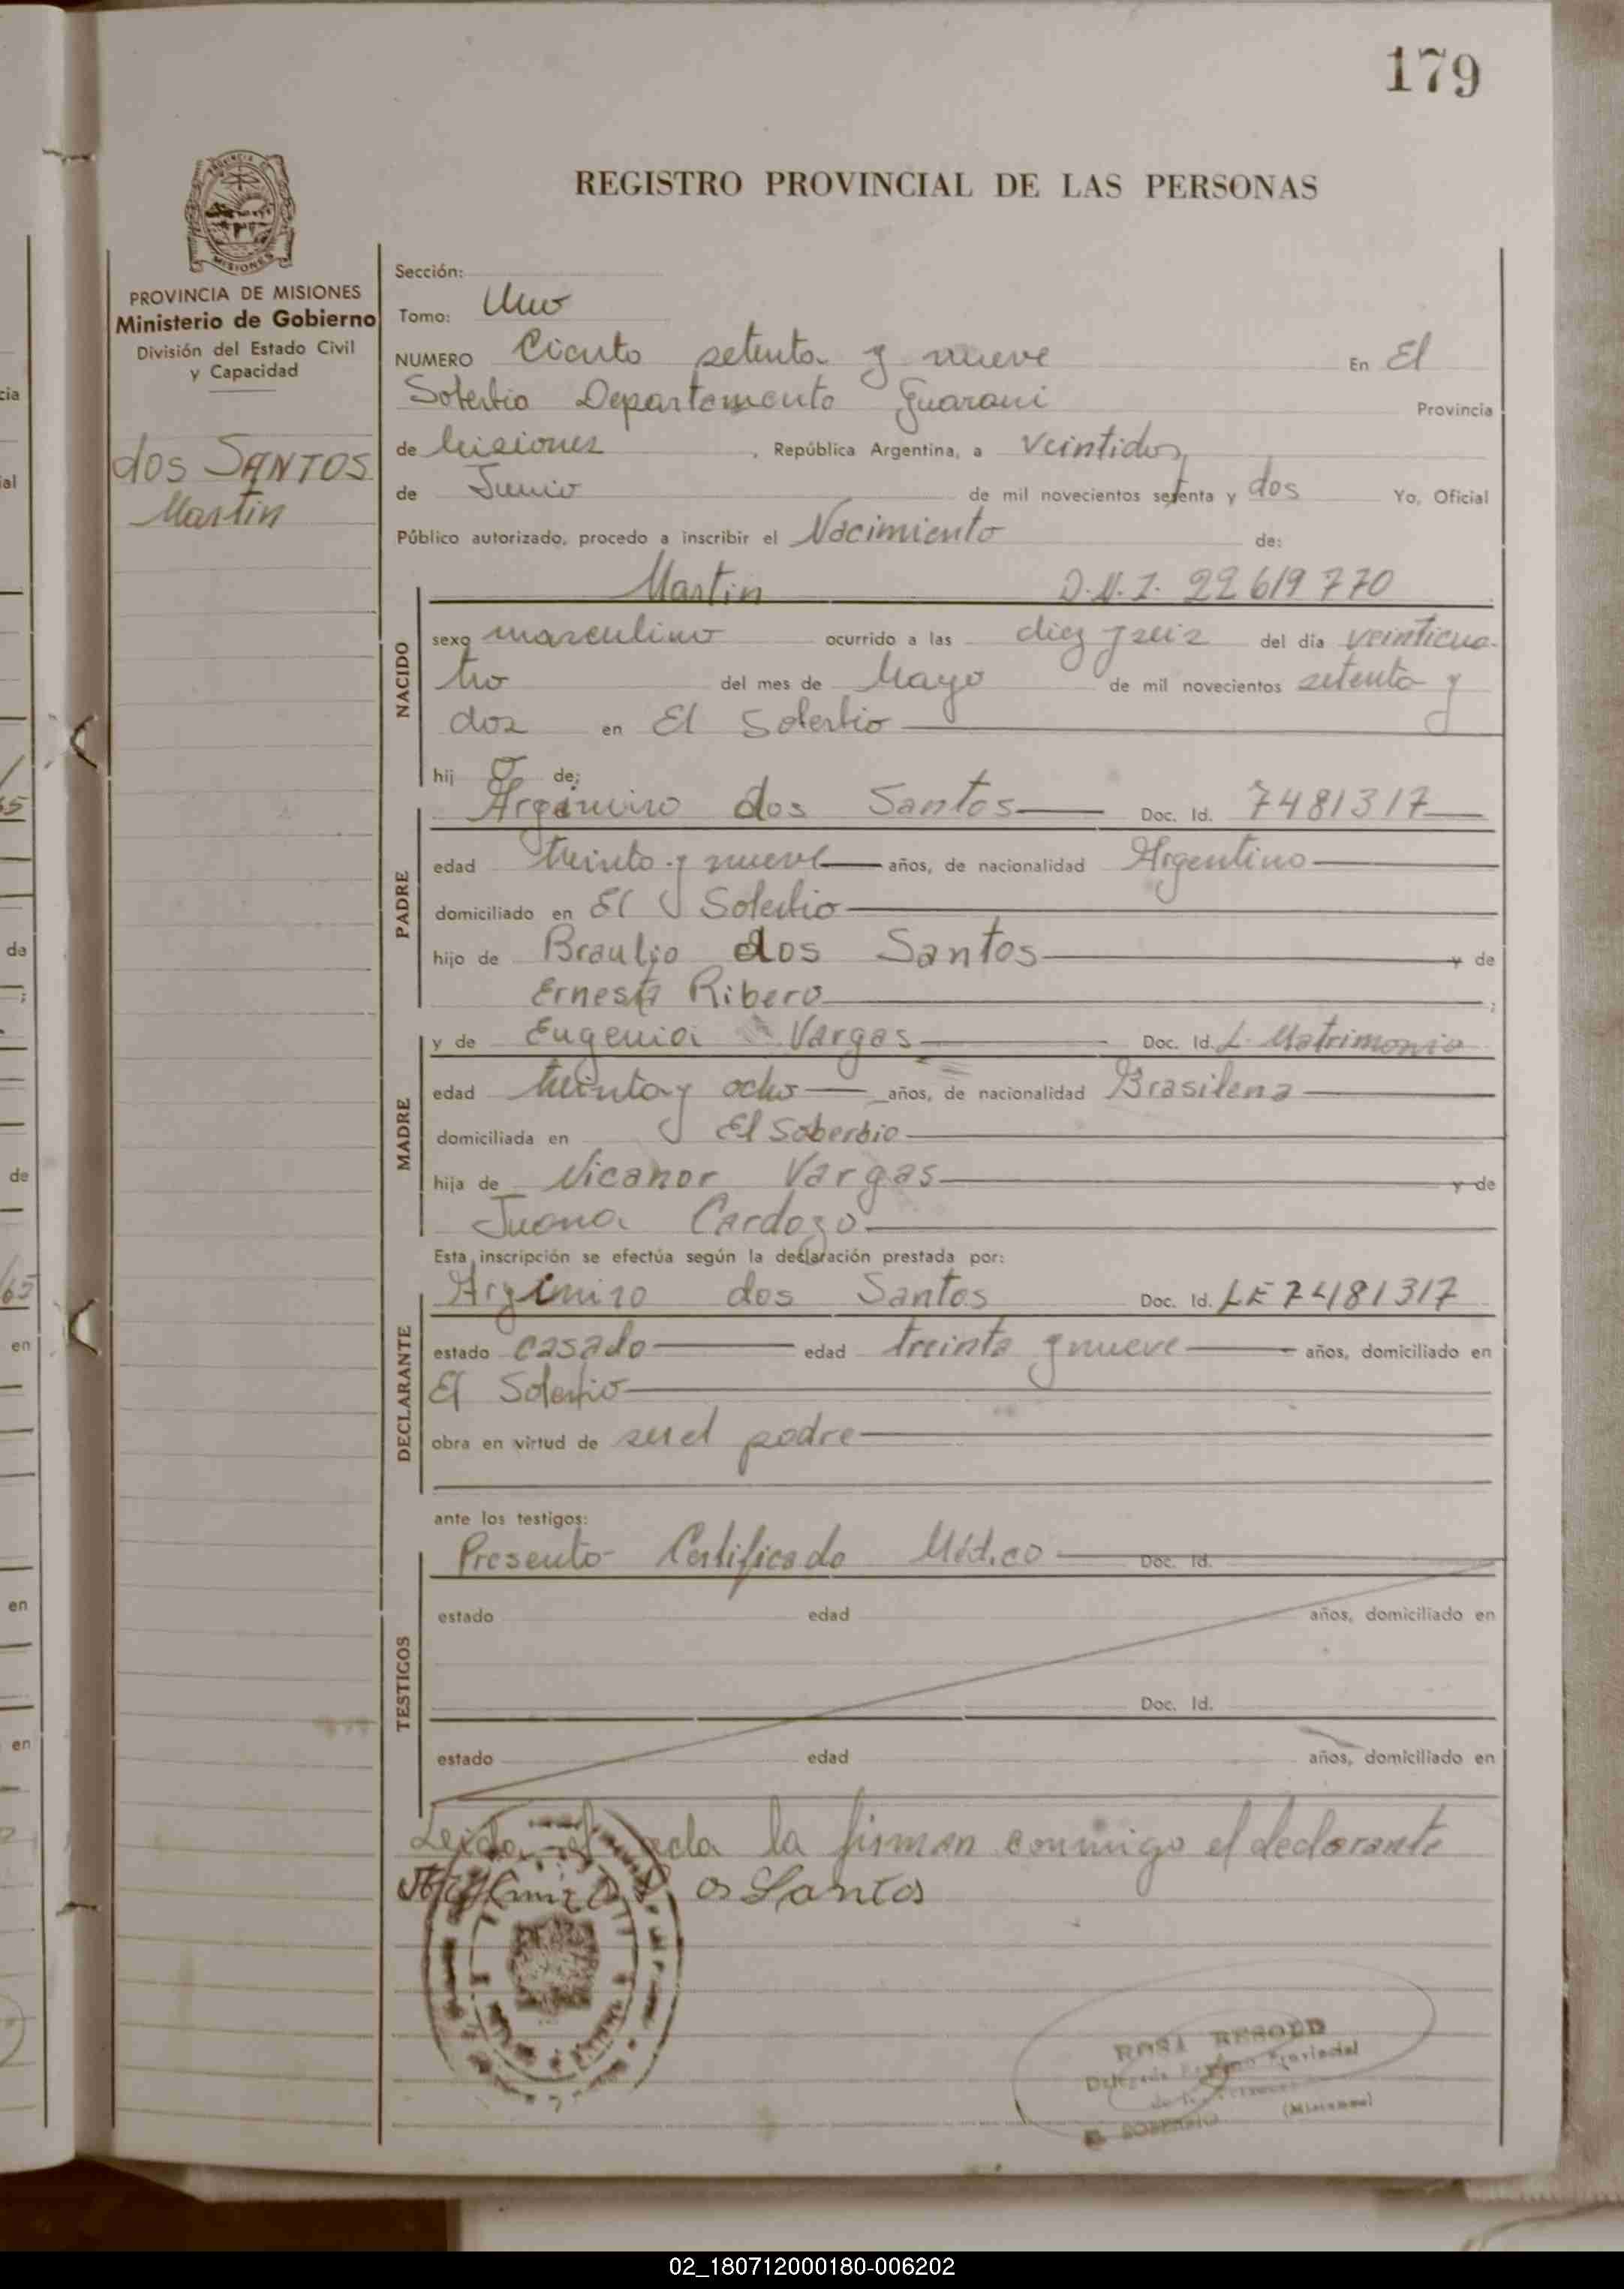 179
REGISTRO PROVINCIAL DE LAS PERSONAS
MISIONES
PROVINCIA DE MISIONES
Ministerio de Gobierno
División del Estado Civil
y Capacidad
dos SANTOS
Martin
Sección:
Tomo: Uno
NUMERO Ciento setenta y nueve En El
Soberbio Departamento Guarani Provincia
de Misiones , República Argentina, a veintidos
de Junio de mil novecientos setenta y dos Yo, Oficial
Público autorizado, procedo a inscribir el Nacimiento de:
Martin D.N.I. 22 619 770
NACIDO
sexo masculino ocurrido a las diez y seis del día veinticua-
tro del mes de Mayo de mil novecientos setenta y
dos en El Soberbio
hij o de;
PADRE
Argimiro dos Santos Doc. Id. 7481317
edad treinta y nueve años, de nacionalidad Argentino
domiciliado en El Soberbio
hijo de Braulio dos Santos y de
Ernesta Ribero ;
MADRE
y de Eugenia Vargas Doc. Id. L. Matrimonio
edad treinta y ocho años, de nacionalidad Brasilena
domiciliada en El Soberbio
hija de Nicanor Vargas y de
Juana Cardozo
Esta inscripción se efectúa según la declaración prestada por:
DECLARANTE
Argimiro dos Santos Doc. Id. LE 7481317
estado casado edad treinta y nueve años, domiciliado en
El Soberbio
obra en virtud de ser el padre
ante los testigos:
TESTIGOS
Presento Certificado Médico Doc. Id.
estado edad años, domiciliado en
Doc. Id.
estado edad años, domiciliado en
Leida el acta la firman conmigo el declarante
Argimiro dos Santos
Provincial
EL SOBERBIO (Misiones)
cia
ial
65
de
;
de
65
en
en
en
02_180712000180-006202